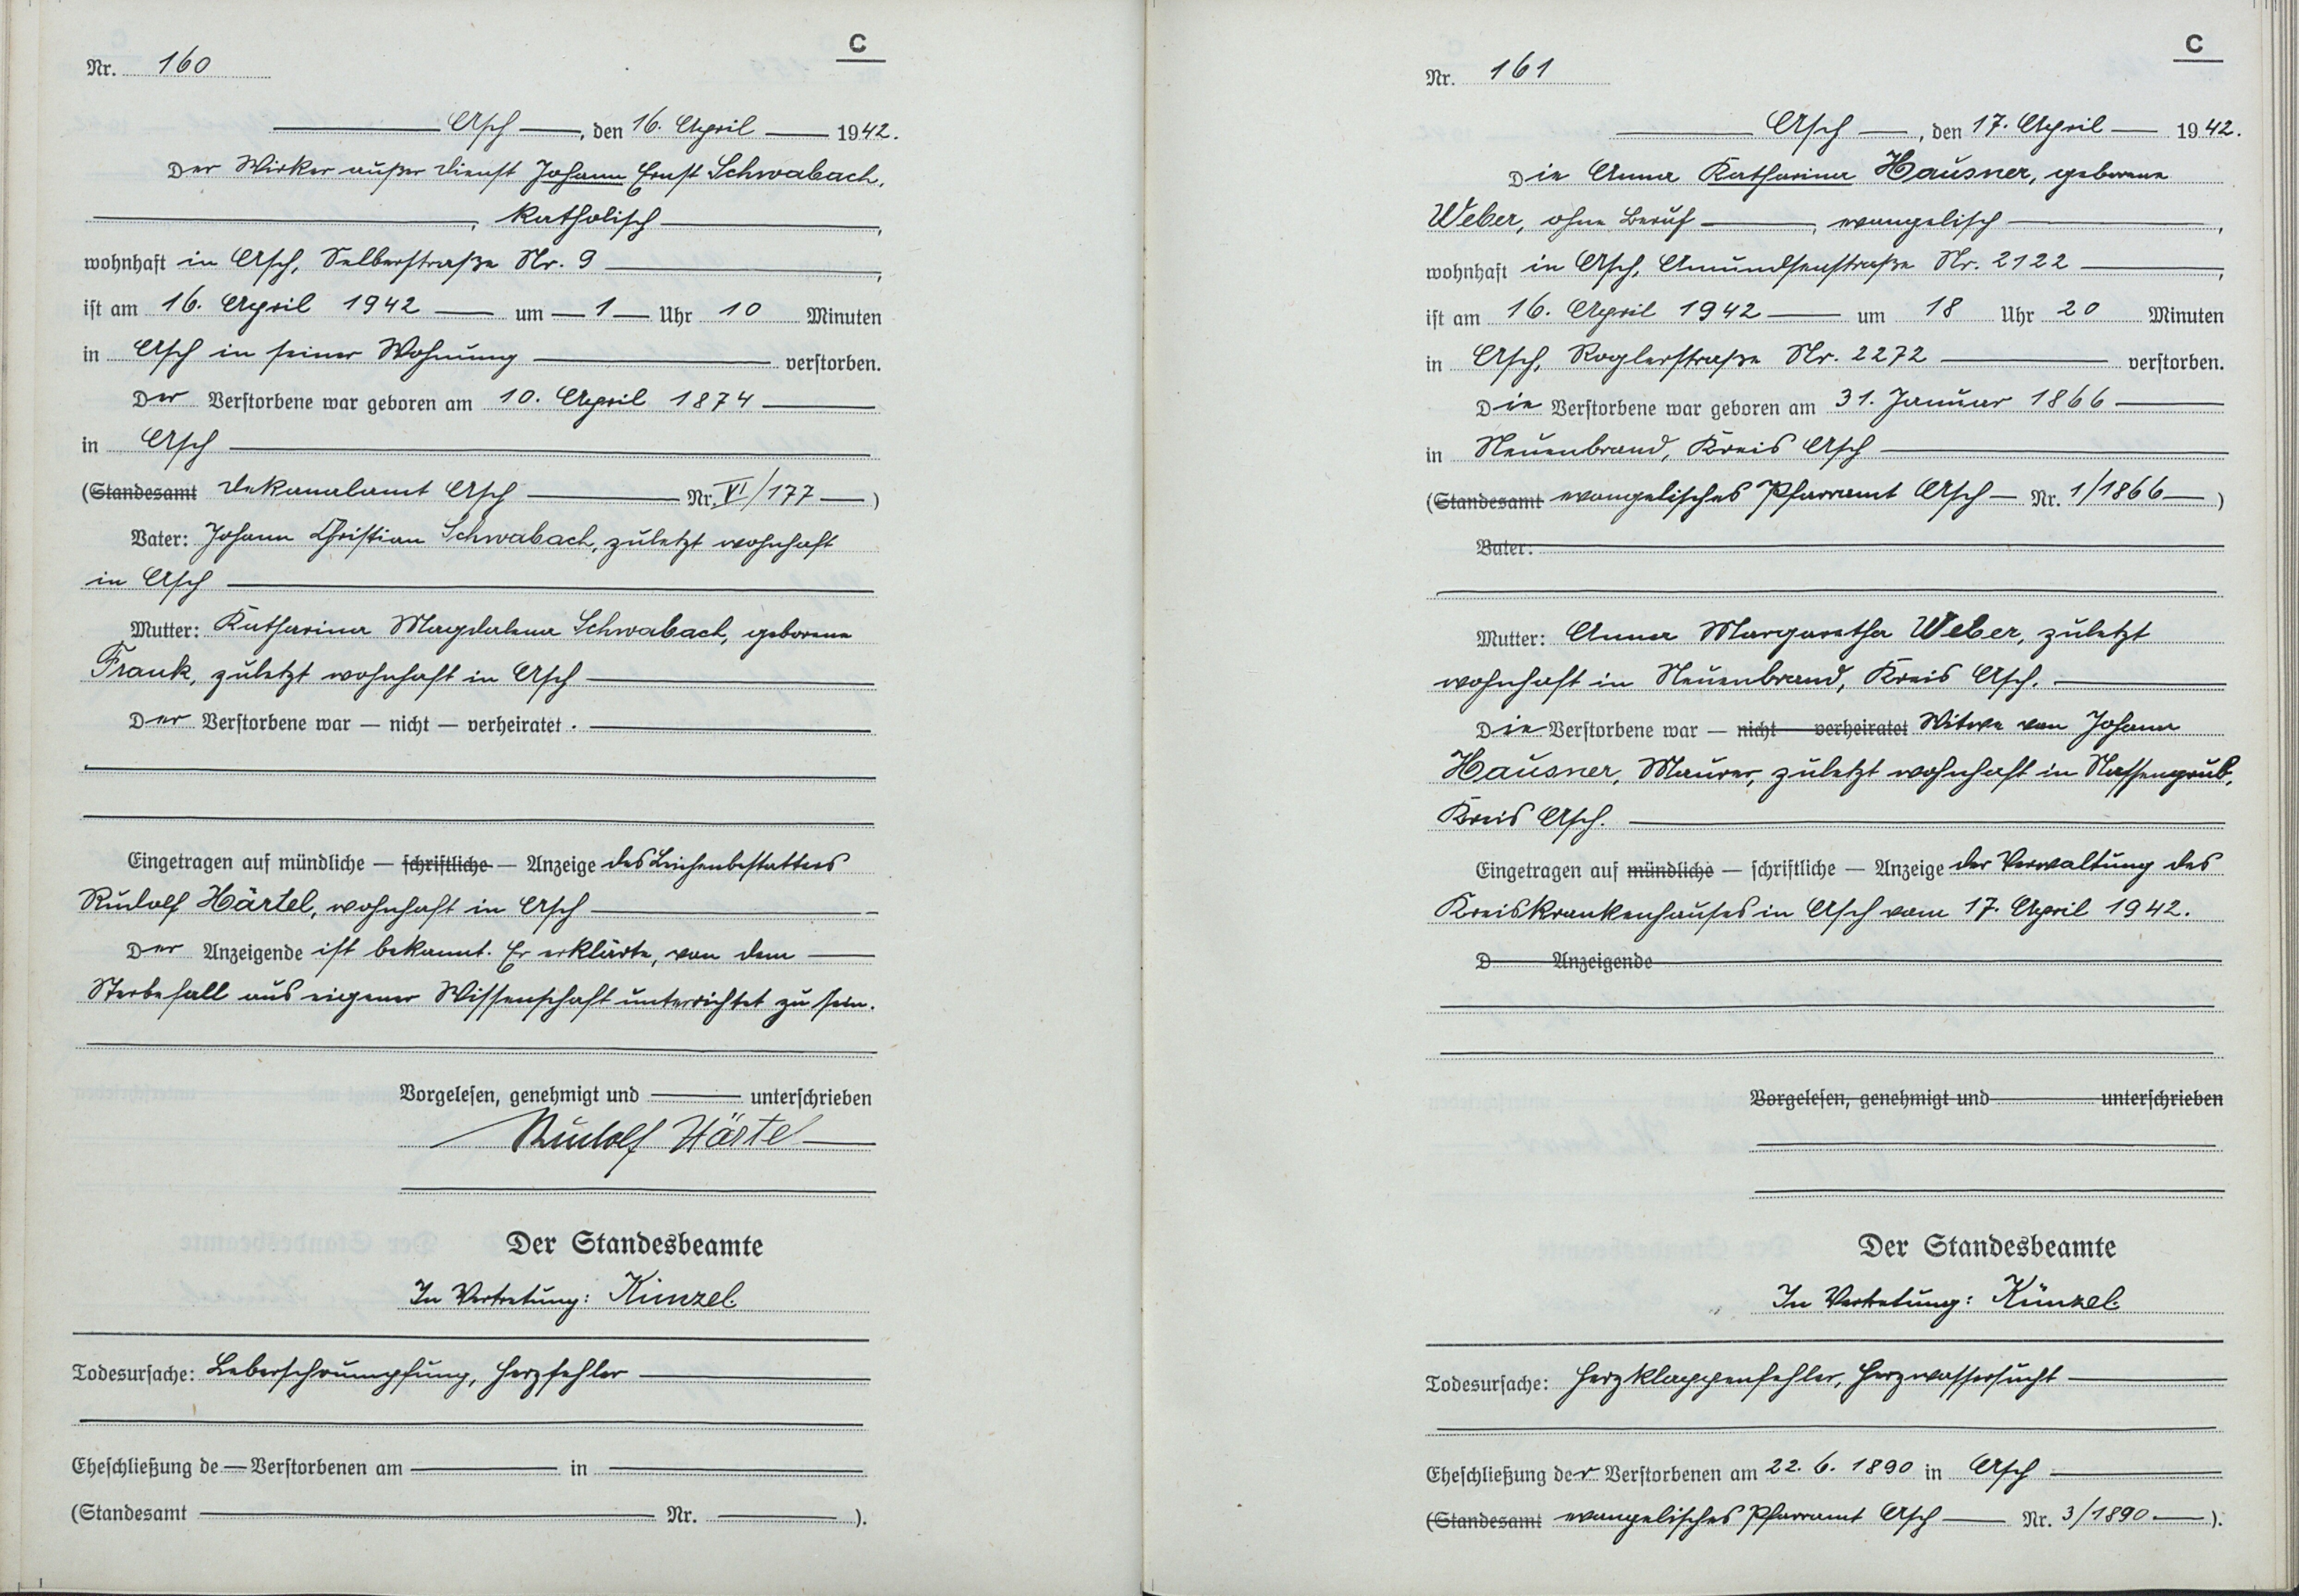 C
Nr. 160
Asch, den 16. April 1942.
Der Wirker außer Dienst Johann Ernst Schwabach,
, katholisch,
wohnhaft in Asch, Selberstraße Nr. 9,
ist am 16. April 1942 um 1 Uhr 10 Minuten
in Asch in seiner Wohnung verstorben.
Der Verstorbene war geboren am 10. April 1874
in Asch
(Standesamt Dekanalamt Asch Nr. VI/177)
Vater: Johann Christian Schwabach, zuletzt wohnhaft
in Asch
Mutter: Katharina Magdalena Schwabach, geborene
Frank, zuletzt wohnhaft in Asch
Der Verstorbene war — nicht — verheiratet.
Eingetragen auf mündliche — schriftliche — Anzeige des Leichenbestatters
Rudolf Härtel, wohnhaft in Asch
Der Anzeigende ist bekannt. Er erklärte, von dem
Sterbefall aus eigener Wissenschaft unterrichtet zu sein.
Vorgelesen, genehmigt und unterschrieben
Rudolf Härtel
Der Standesbeamte
In Vertretung: Künzel.
Todesursache: Leberschrumpfung, Herzfehler
Eheschließung de — Verstorbenen am in
(Standesamt Nr. ).
C
Nr. 161
Asch, den 17. April 1942.
Die Anna Katharina Hausner, geborene
Weber, ohne Beruf, evangelisch,
wohnhaft in Asch, Amundsenstraße Nr. 2122,
ist am 16. April 1942 um 18 Uhr 20 Minuten
in Asch, Roglerstraße Nr. 2272 verstorben.
Die Verstorbene war geboren am 31. Januar 1866
in Neuenbrand, Kreis Asch
(Standesamt evangelisches Pfarramt Asch Nr. 1/1866)
Vater:
Mutter: Anna Margaretha Weber, zuletzt
wohnhaft in Neuenbrand, Kreis Asch.
Die Verstorbene war — nicht — verheiratet Witwe von Johann
Hausner, Maurer, zuletzt wohnhaft in Nassengrub,
Kreis Asch.
Eingetragen auf mündliche — schriftliche — Anzeige der Verwaltung des
Kreiskrankenhauses in Asch vom 17. April 1942.
D Anzeigende
Vorgelesen, genehmigt und unterschrieben
Der Standesbeamte
In Vertretung: Künzel.
Todesursache: Herzklappenfehler, Herzwassersucht
Eheschließung der Verstorbenen am 22. 6. 1890 in Asch
(Standesamt evangelisches Pfarramt Asch Nr. 3/1890).